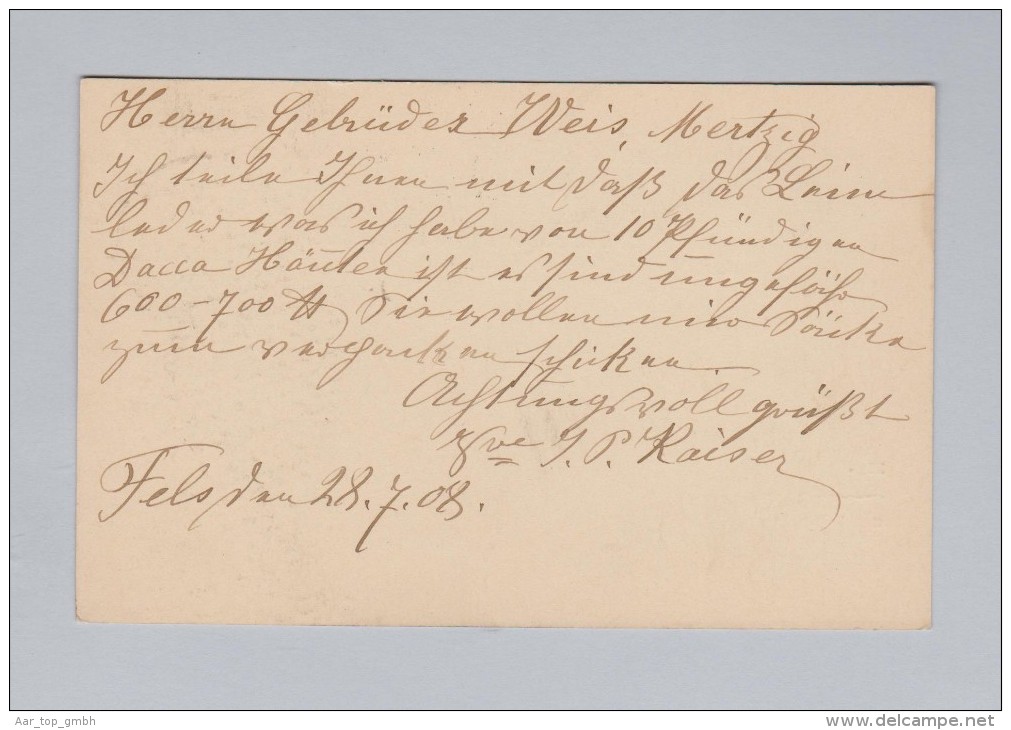 Herrn Gebrüder Weis, Mertzig
Ich teile Ihnen mit daß das Leim
leder was ich habe von 10 Pfündigen
Dacca Häuten ist es sind ungefähr
600-700 ℔ Sie wollen mir Säcke
zum verpacken schicken.
Achtungsvoll grüßt
Vve J. P. Kaiser
Fels den 28.7.08.
Aar_top_gmbh
www.delcampe.net